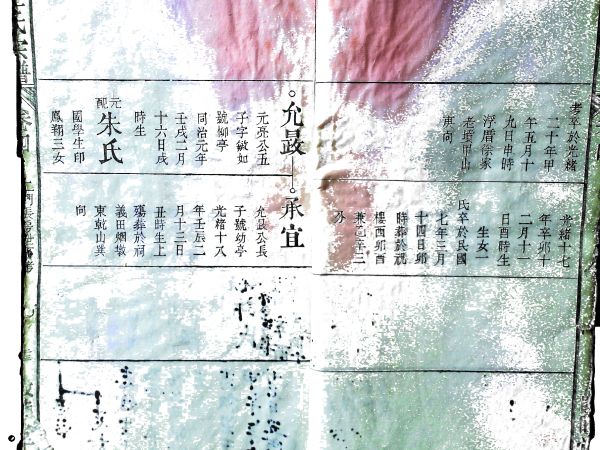 考卒於光緒
二十年甲
午五月十
九日申時
浮厝徐家
老墳甲山
庚向
光緒十七
年辛卯十
二月十一
日酉時生
生女一
氏卒於民國
七年三月
十四日卯
時葬於祝
樓西卯酉
兼乙辛三
分
允最
承宣
元亮公五
子字敏如
號柳亭
同治元年
壬戌二月
十六日戌
時生
元配
朱氏
國學生印
鳳翔三女
允最公長
子號幼亭
光緒十八
年壬辰二
月十三日
丑時生上
殤葬於祠
義田烟墩
東乾山巽
向
氏宗譜